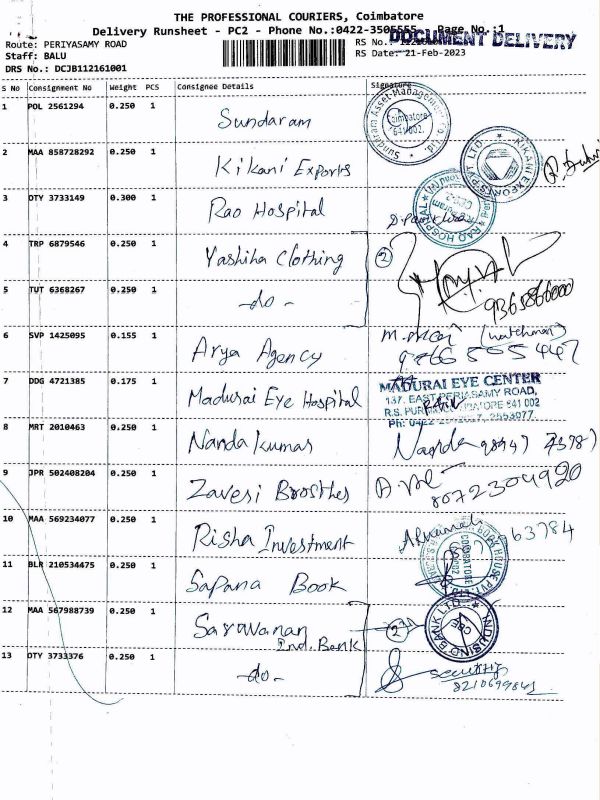 THE PROFESSIONAL COURIERS, Coimbatore
Delivery Runsheet - PC2 - Phone No.:0422-3505555 Page No.:1
Route: PERIYASAMY ROAD
RS No.:
DOCUMENT DELIVERY
Staff: BALU
RS Date: 21-Feb-2023
DRS No.: DCJB112161001
S No Consignment No Weight PCS Consignee Details Signature
1 POL 2561294 0.250 1 Sundaram
Sundaram Asset Management Co. Ltd. Coimbatore 641 002.
2 MAA 858728292 0.250 1 Kikani Exports
KIKANI EXPORTS PVT. LTD.
3 OTY 3733149 0.300 1 Rao Hospital
RAO HOSPITAL
4 TRP 6879546 0.250 1 Yashiha Clothing 2
5 TUT 6368267 0.250 1 -do-
6 SVP 1425095 0.155 1 Arya Agency (watchman)
7 DDG 4721385 0.175 1 Madurai Eye Hospital
MADURAI EYE CENTER
137, EAST PERIASAMY ROAD,
R.S. PURAM, COIMBATORE 641 002
8 MRT 2010463 0.250 1 Nandakumar Nanda
9 JPR 502408204 0.250 1 Zaveri Brosthes 8072304920
10 MAA 569234077 0.250 1 Risha Investment 63784
11 BLR 210534475 0.250 1 Sapana Book
BOOK HOUSE PVT COIMBATORE
12 MAA 567988739 0.250 1 Saravanan Ind. Bank 2
INDUSIND BANK LTD. CBE
13 OTY 3733376 0.250 1 -do- security
8210699841